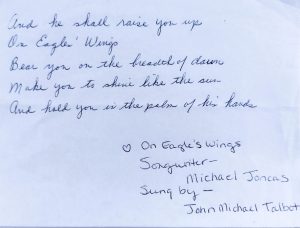 And he shall raise you up
On Eagles' Wings
Bear you on the breadth of dawn
Make you to shine like the sun
And hold you in the palm of his hands
♡ On Eagle's Wings
Songwriter—
Michael Joncas
Sung by —
John Michael Talbot